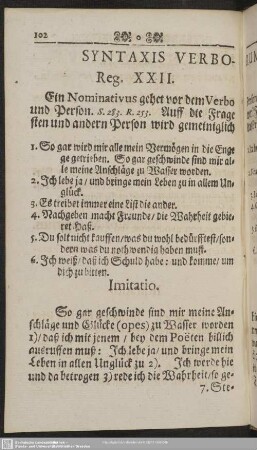 102
SYNTAXIS VERBO-
Reg. XXII.
Ein Nominativus gehet vor dem Verbo
und Person. S. 283. R. 255. Auff die Frage
sten und andern Person wird gemeiniglich
1. So gar wird mir alle mein Vermögen in die Enge
ge getrieben. So gar geschwinde sind mir al-
le meine Anschläge zu Wasser worden.
2. Ich lebe ja / und bringe mein Leben zu in allem Un-
glück.
3. Es treibet immer eine List die ander.
4. Nachgeben macht Freunde / die Wahrheit gebie-
ret Haß.
5. Du solt nicht kauffen / was du wohl bedürfftest / son-
dern was du nothwendig haben must.
6. Ich weiß / daß ich Schuld habe : und komme / um
dich zu bitten.
Imitatio.
So gar geschwinde sind mir meine An-
schläge und Glücke (opes) zu Wasser worden
1) / daß ich mit jenem / bey dem Poëten billich
ausruffen muß : Ich lebe ja / und bringe mein
Leben in allen Unglück zu 2). Ich werde hie
und da betrogen 3) rede ich die Wahrheit / so ge-
7. Ste-